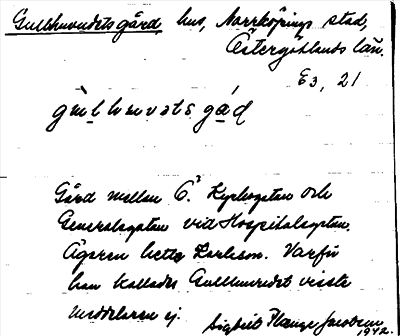 Gullhuvudets gård, hus, Norrköpings stad,
Östergötlands län.
E3, 21
gu̇l hu̇vǝts gȧd
Gård mellan Ö. Kyrkogatan och
Generalsgatan vid Hospitalsgatan.
Ägaren hette Karlson. Varför
han kallades Gullhuvudet visste
meddelaren ej.
Sigbrit Plange Jacobson
1942.